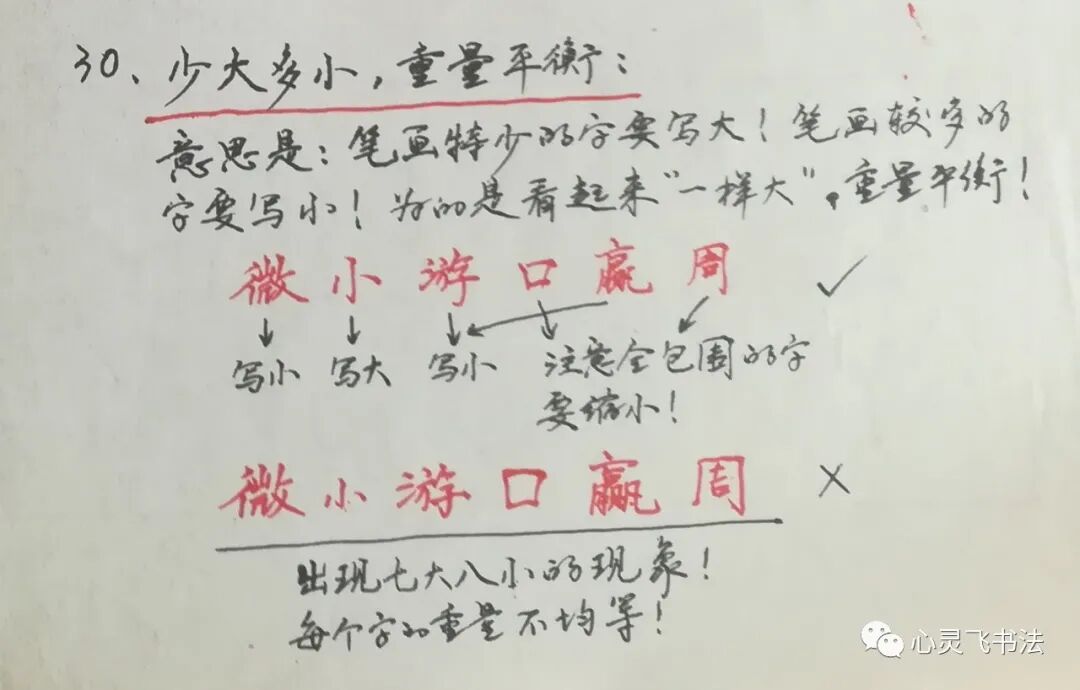 30、少大多小，重量平衡：
意思是：笔画特少的字要写大！笔画较多的
字要写小！为的是看起来“一样大”，重量平衡！
微 小 游 口 赢 周 ✓
写小 写大 写小 注意全包围的字
要缩小！
微 小 游 口 赢 周 ×
出现七大八小的现象！
每个字的重量不均等！
心灵飞书法